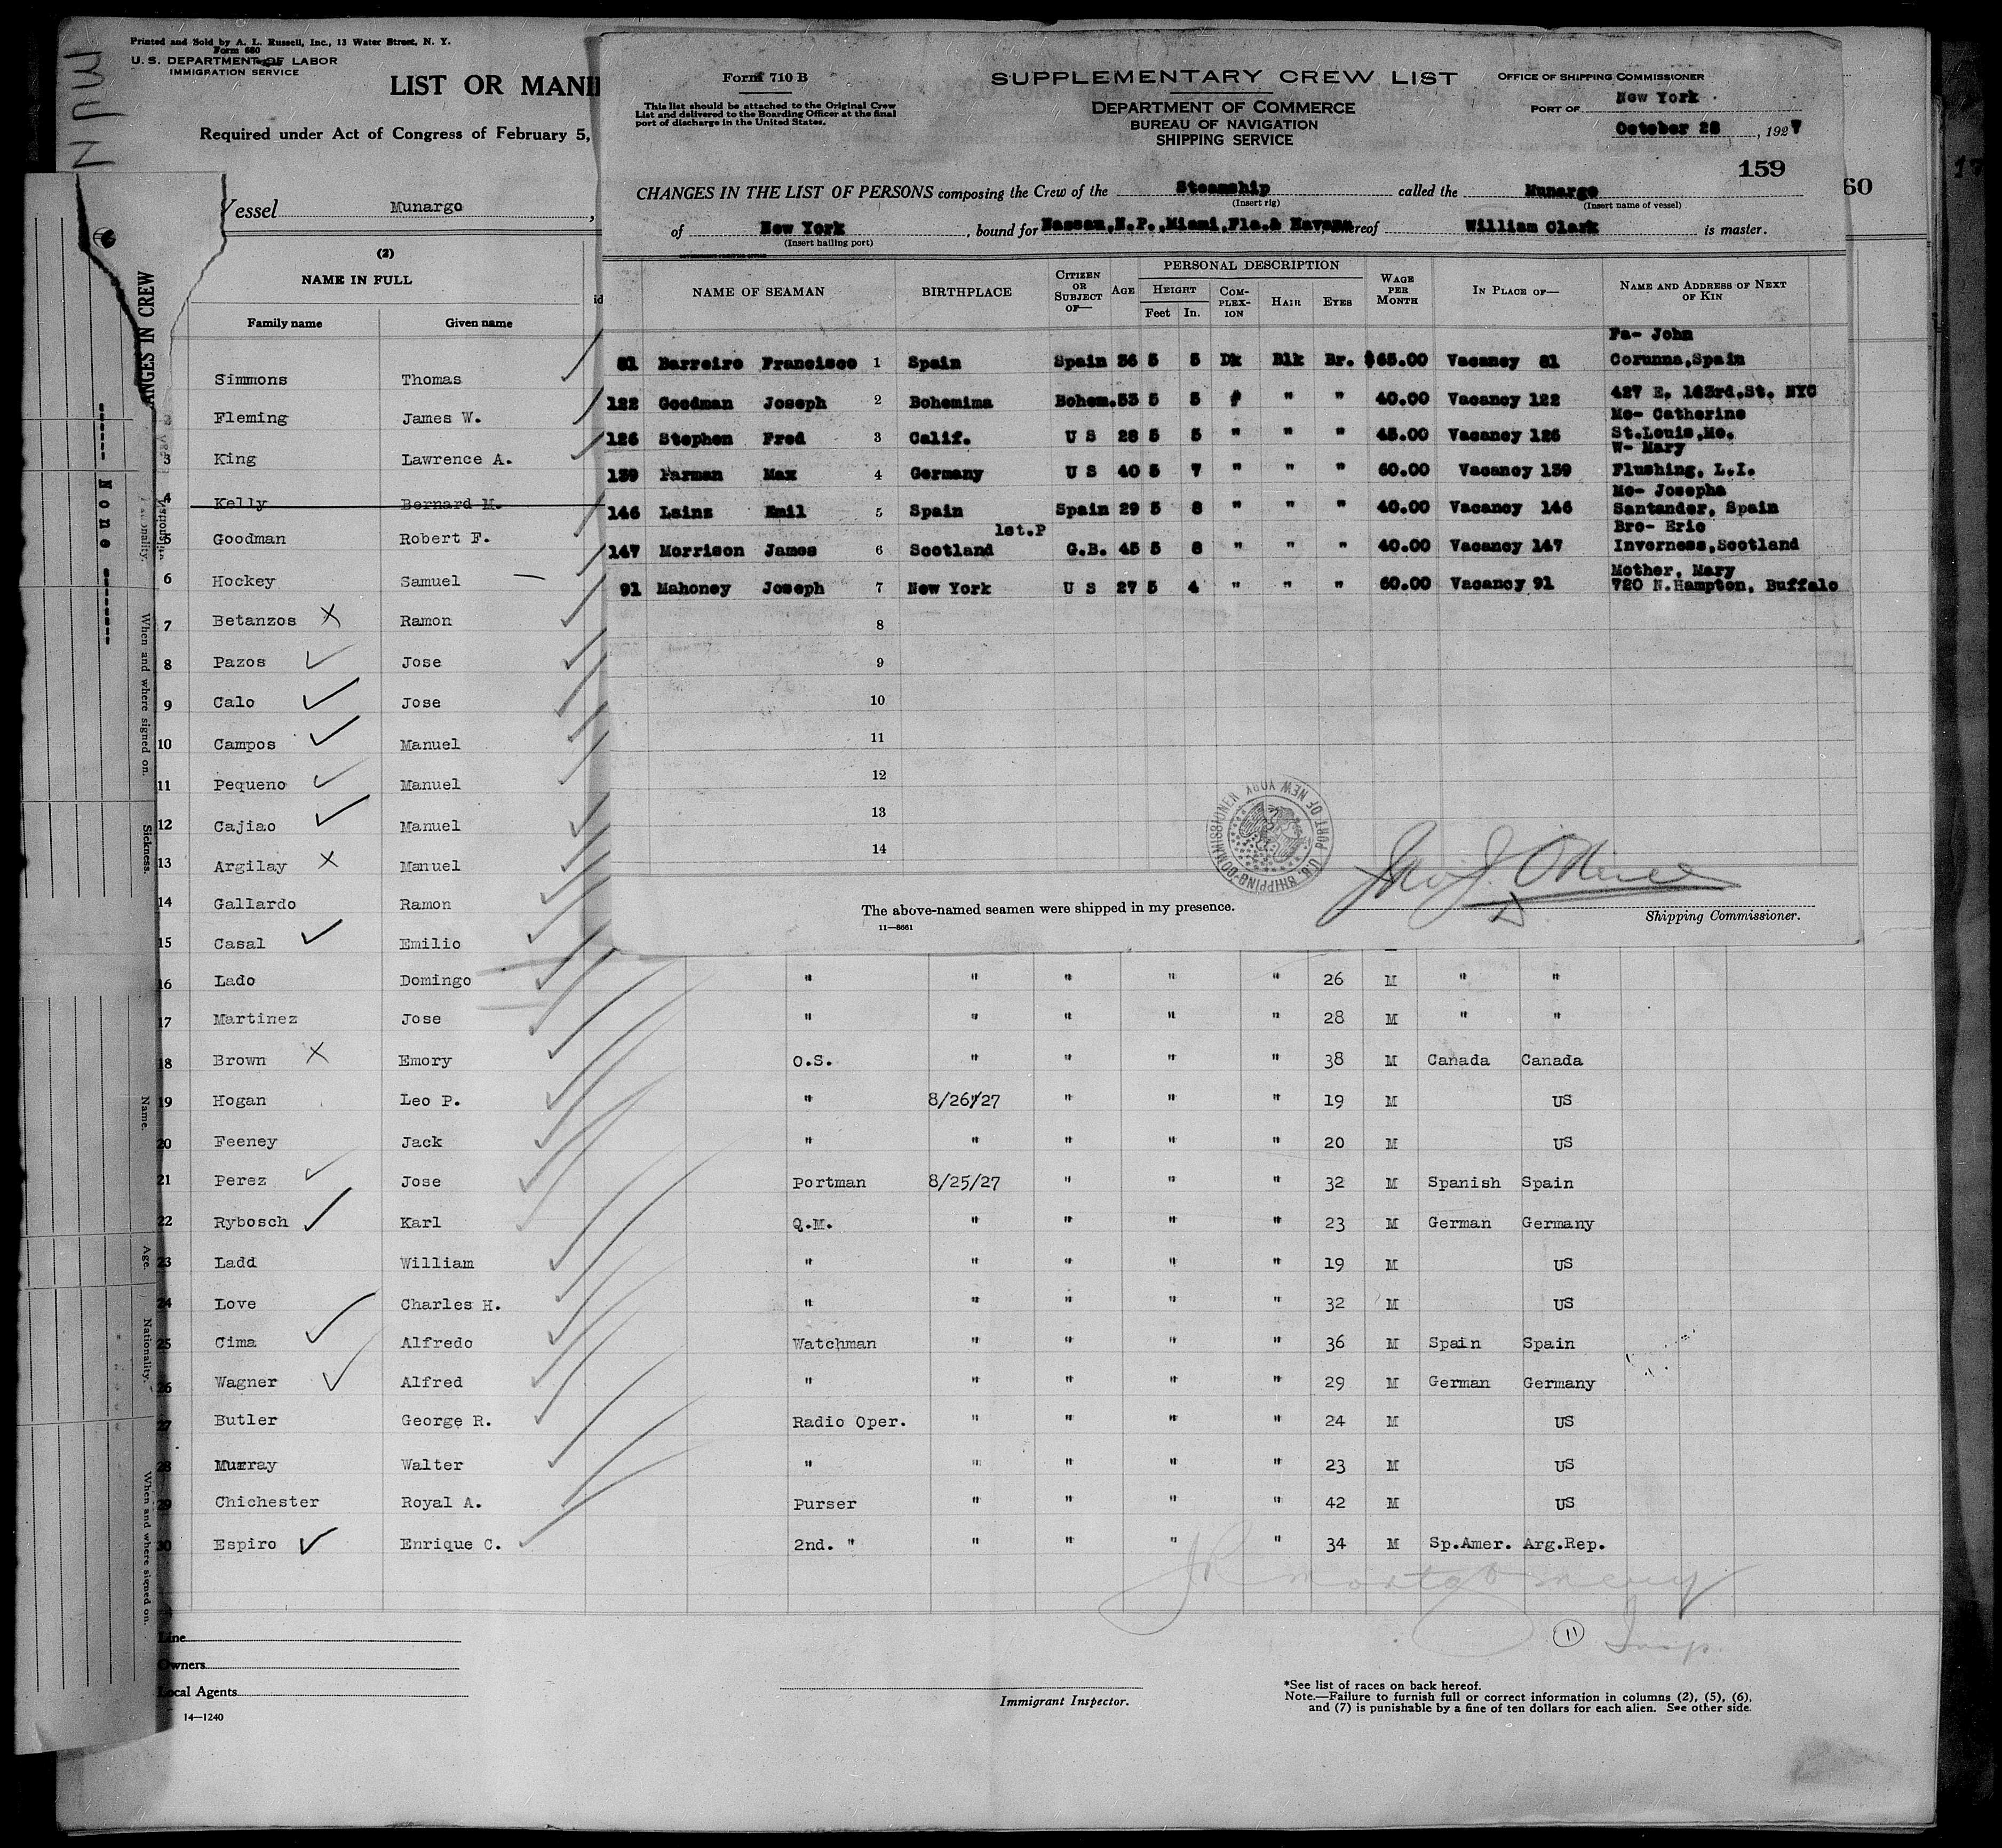 Printed and Sold by A. L. Russell, Inc., 13 Water Street, N. Y.
Form 680
U. S. DEPARTMENT OF LABOR
IMMIGRATION SERVICE
MUN
LIST OR MANI
Required under Act of Congress of February 5,
Vessel Munargo ,
(2)
NAME IN FULL
Family name Given name
Simmons Thomas
Fleming James W.
3 King Lawrence A.
4 Kelly Bernard M.
5 Goodman Robert F.
6 Hockey Samuel —
7 Betanzos X Ramon
8 Pazos ✓ Jose
9 Calo ✓ Jose
10 Campos ✓ Manuel
11 Pequeno ✓ Manuel
12 Cajiao ✓ Manuel
13 Argilay X Manuel
14 Gallardo Ramon
15 Casal ✓ Emilio
16 Lado Domingo " " " " " 26 M " "
17 Martinez Jose " " " " " 28 M " "
18 Brown X Emory O.S. " " " " 38 M Canada Canada
19 Hogan Leo P. " 8/26/27 " " " 19 M US
20 Feeney Jack " " " " " 20 M US
21 Perez ✓ Jose Portman 8/25/27 " " " 32 M Spanish Spain
22 Rybosch ✓ Karl Q.M. " " " " 23 M German Germany
23 Ladd William " " " " " 19 M US
24 Love Charles H. " " " " " 32 M US
25 Cima ✓ Alfredo Watchman " " " " 36 M Spain Spain
26 Wagner ✓ Alfred " " " " " 29 M German Germany
27 Butler George R. Radio Oper. " " " " 24 M US
28 Murray Walter " " " " " 23 M US
29 Chichester Royal A. Purser " " " " 42 M US
30 Espiro ✓ Enrique C. 2nd. " " " " " 34 M Sp.Amer. Arg.Rep.
JR Montgomery
11 Insp.
Line
Owners
Local Agents
14—1240
Immigrant Inspector.
*See list of races on back hereof.
Note.—Failure to furnish full or correct information in columns (2), (5), (6),
and (7) is punishable by a fine of ten dollars for each alien. See other side.
ANGES IN CREW
None
Nationality.
When and where signed on.
Sickness.
Name.
Age.
Nationality.
When and where signed on.
Form 710 B
This list should be attached to the Original Crew
List and delivered to the Boarding Officer at the final
port of discharge in the United States.
SUPPLEMENTARY CREW LIST
DEPARTMENT OF COMMERCE
BUREAU OF NAVIGATION
SHIPPING SERVICE
OFFICE OF SHIPPING COMMISSIONER
PORT OF New York
October 28 , 1927
159
60
CHANGES IN THE LIST OF PERSONS composing the Crew of the Steamship called the Munargo
(Insert rig) (Insert name of vessel)
of New York , bound for Nassau,N.P.,Miami,Fla.& Havana ereof William Clark is master.
(Insert hailing port)
NAME OF SEAMAN BIRTHPLACE CITIZEN OR SUBJECT OF— AGE PERSONAL DESCRIPTION HEIGHT Feet In. COMPLEXION HAIR EYES WAGE PER MONTH IN PLACE OF— NAME AND ADDRESS OF NEXT OF KIN
Fa- John
81 Barreiro Francisco 1 Spain Spain 36 5 5 Dk Blk Br. $65.00 Vacancy 81 Corunna,Spain
427 E. 163rd.St. NYC
122 Goodman Joseph 2 Bohemima Bohem. 53 5 5 " " " 40.00 Vacancy 122
Mo- Catherine
126 Stephen Fred 3 Calif. U S 28 5 5 " " " 45.00 Vacancy 126 St.Louis,Mo.
W- Mary
139 Farman Max 4 Germany U S 40 5 7 " " " 60.00 Vacancy 139 Flushing, L.I.
Mo- Josepha
146 Lainz Emil 5 Spain Spain 29 5 8 " " " 40.00 Vacancy 146 Santander, Spain
1st.P Bro- Eric
147 Morrison James 6 Scotland G.B. 45 5 8 " " " 40.00 Vacancy 147 Inverness,Scotland
Mother, Mary
91 Mahoney Joseph 7 New York U S 27 5 4 " " " 60.00 Vacancy 91 720 N.Hampton, Buffalo
8
9
10
11
12
13
14
U.S. SHIPPING-COMMISSIONER PORT OF NEW YORK
The above-named seamen were shipped in my presence.
11—8661
Shipping Commissioner.